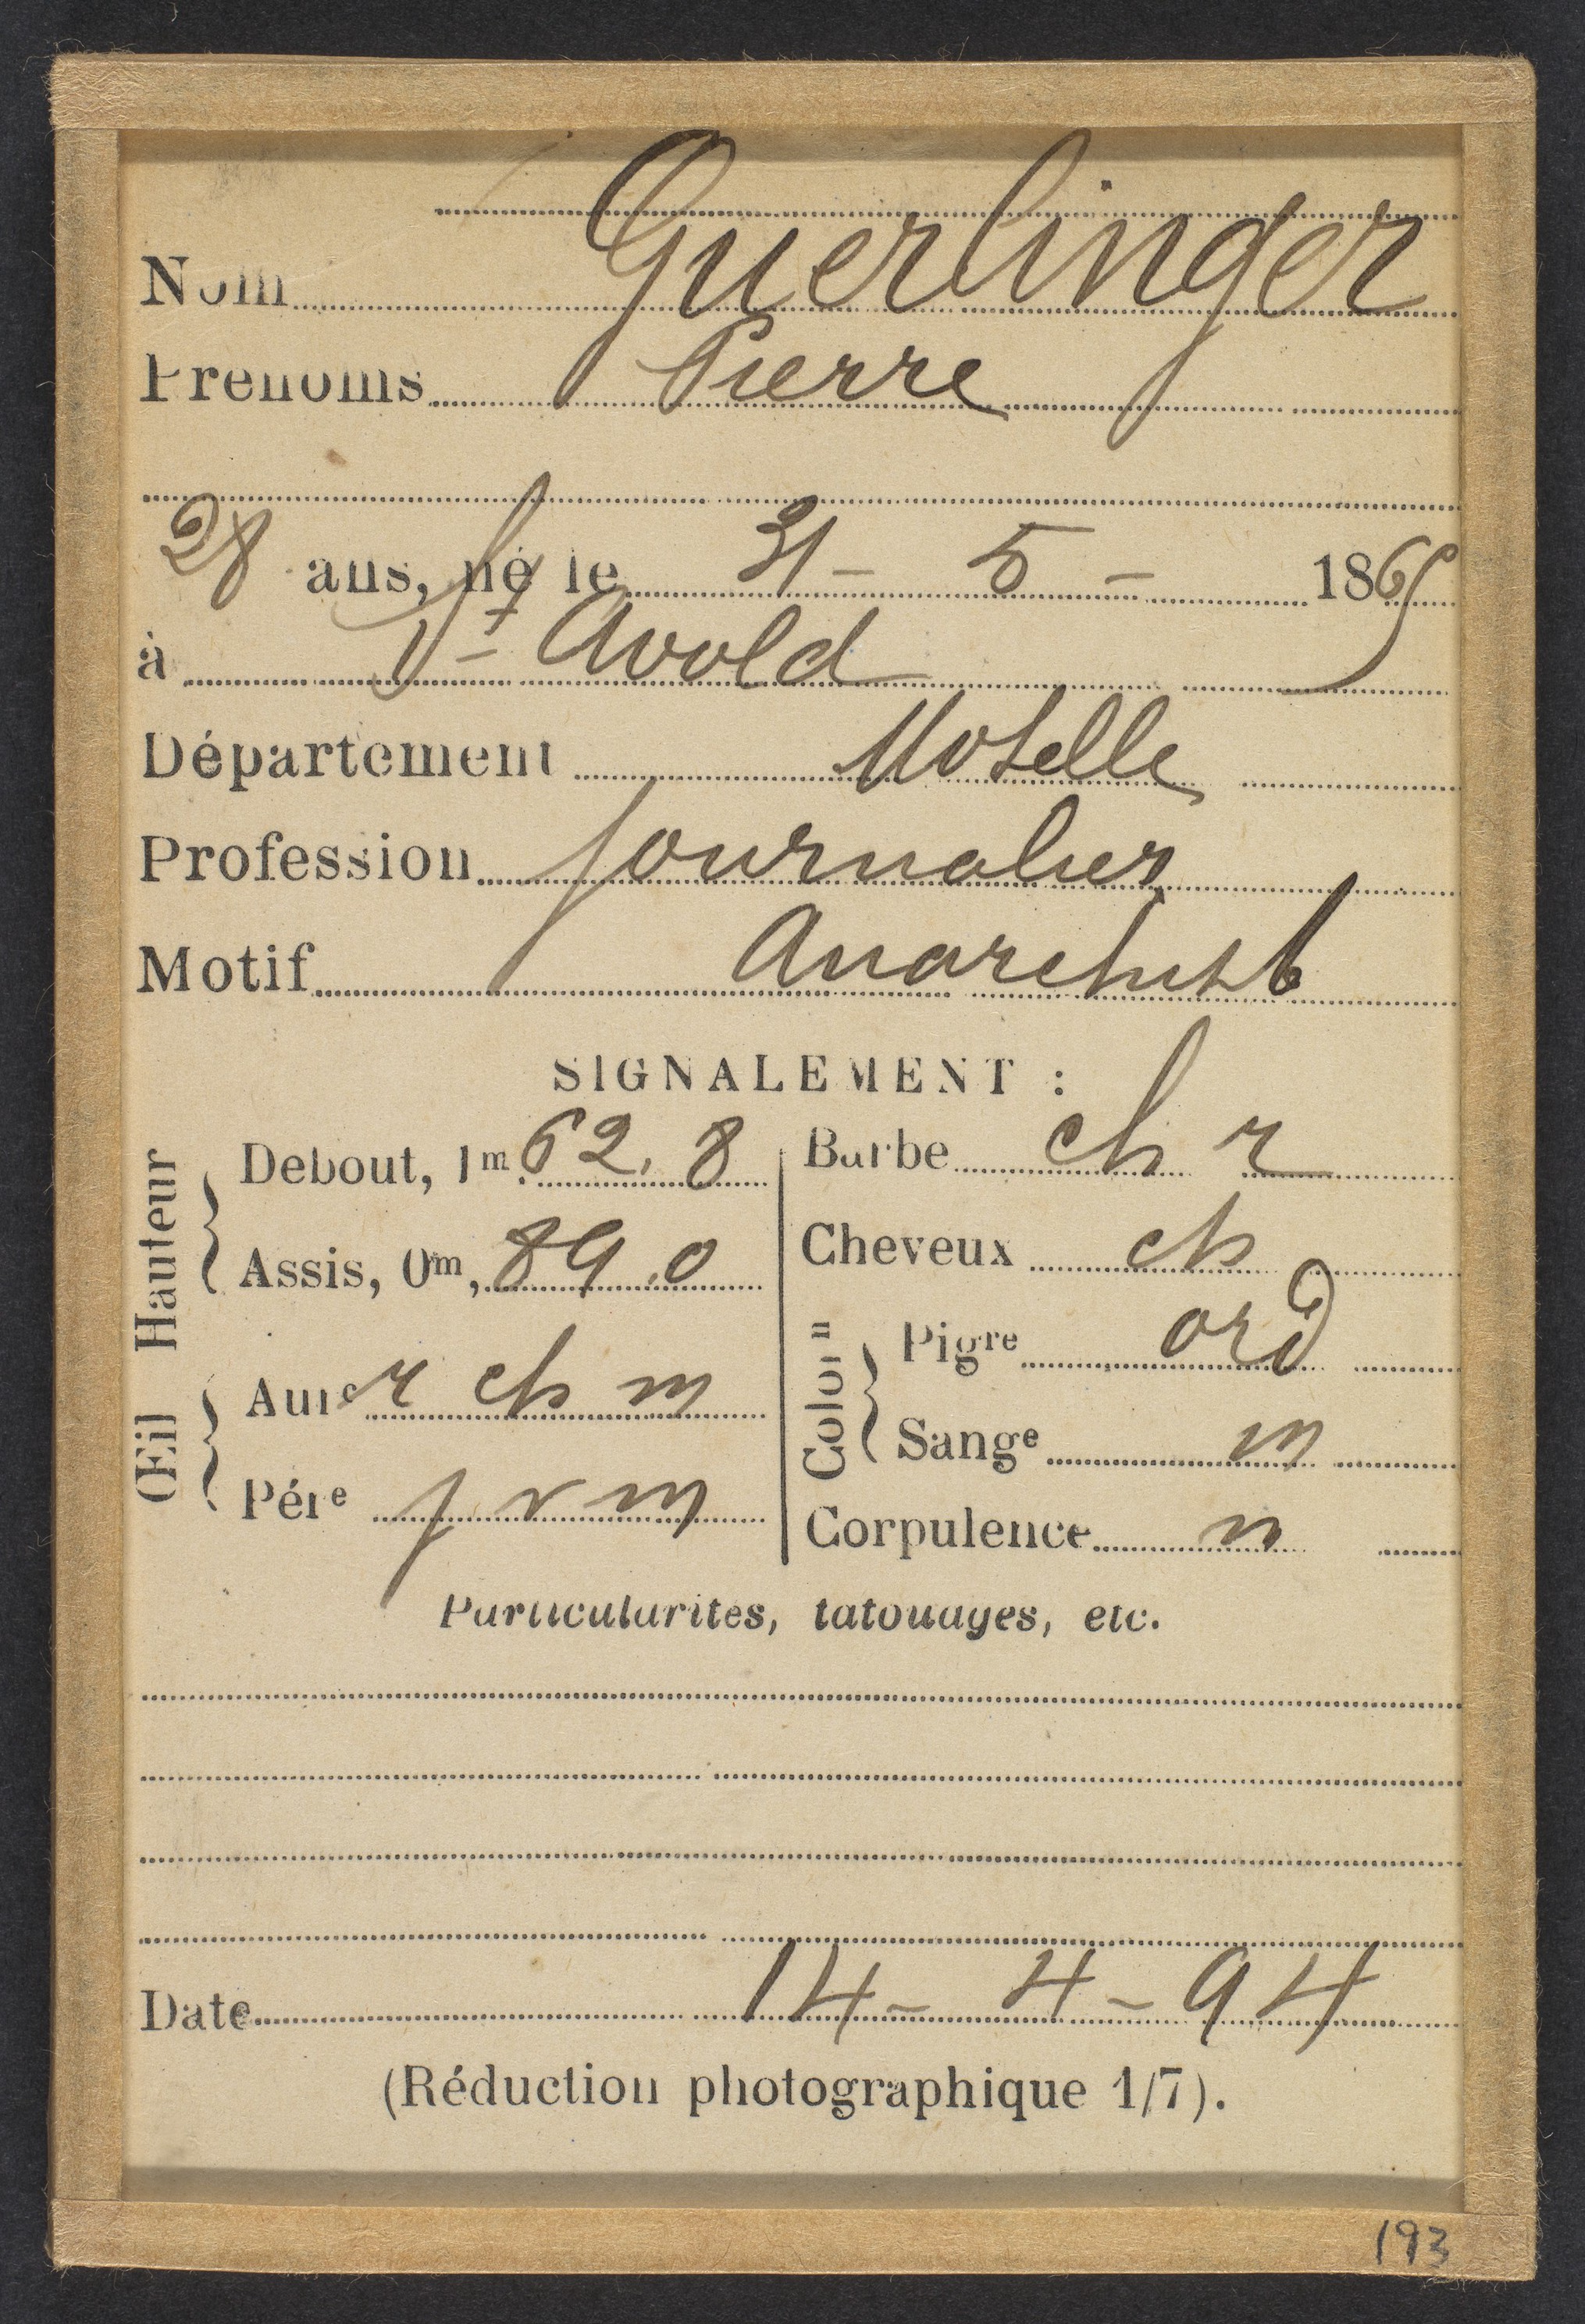 Nom Guerlinger
Prénoms Pierre
28 ans, né le 31 - 5 - 1865
à St Avold
Département Moselle
Profession Journalier
Motif Anarchist
SIGNALEMENT :
Hauteur
Debout, 1m.62,8
Assis, 0m,89,0
Œil
Aure r ch m
Pére p v m
Barbe ch r
Cheveux ch
Colon
Pigre ord
Sange m
Corpulence m
Particularites, tatouages, etc.
Date 14 - 4 - 94
(Réduction photographique 1/7).
193